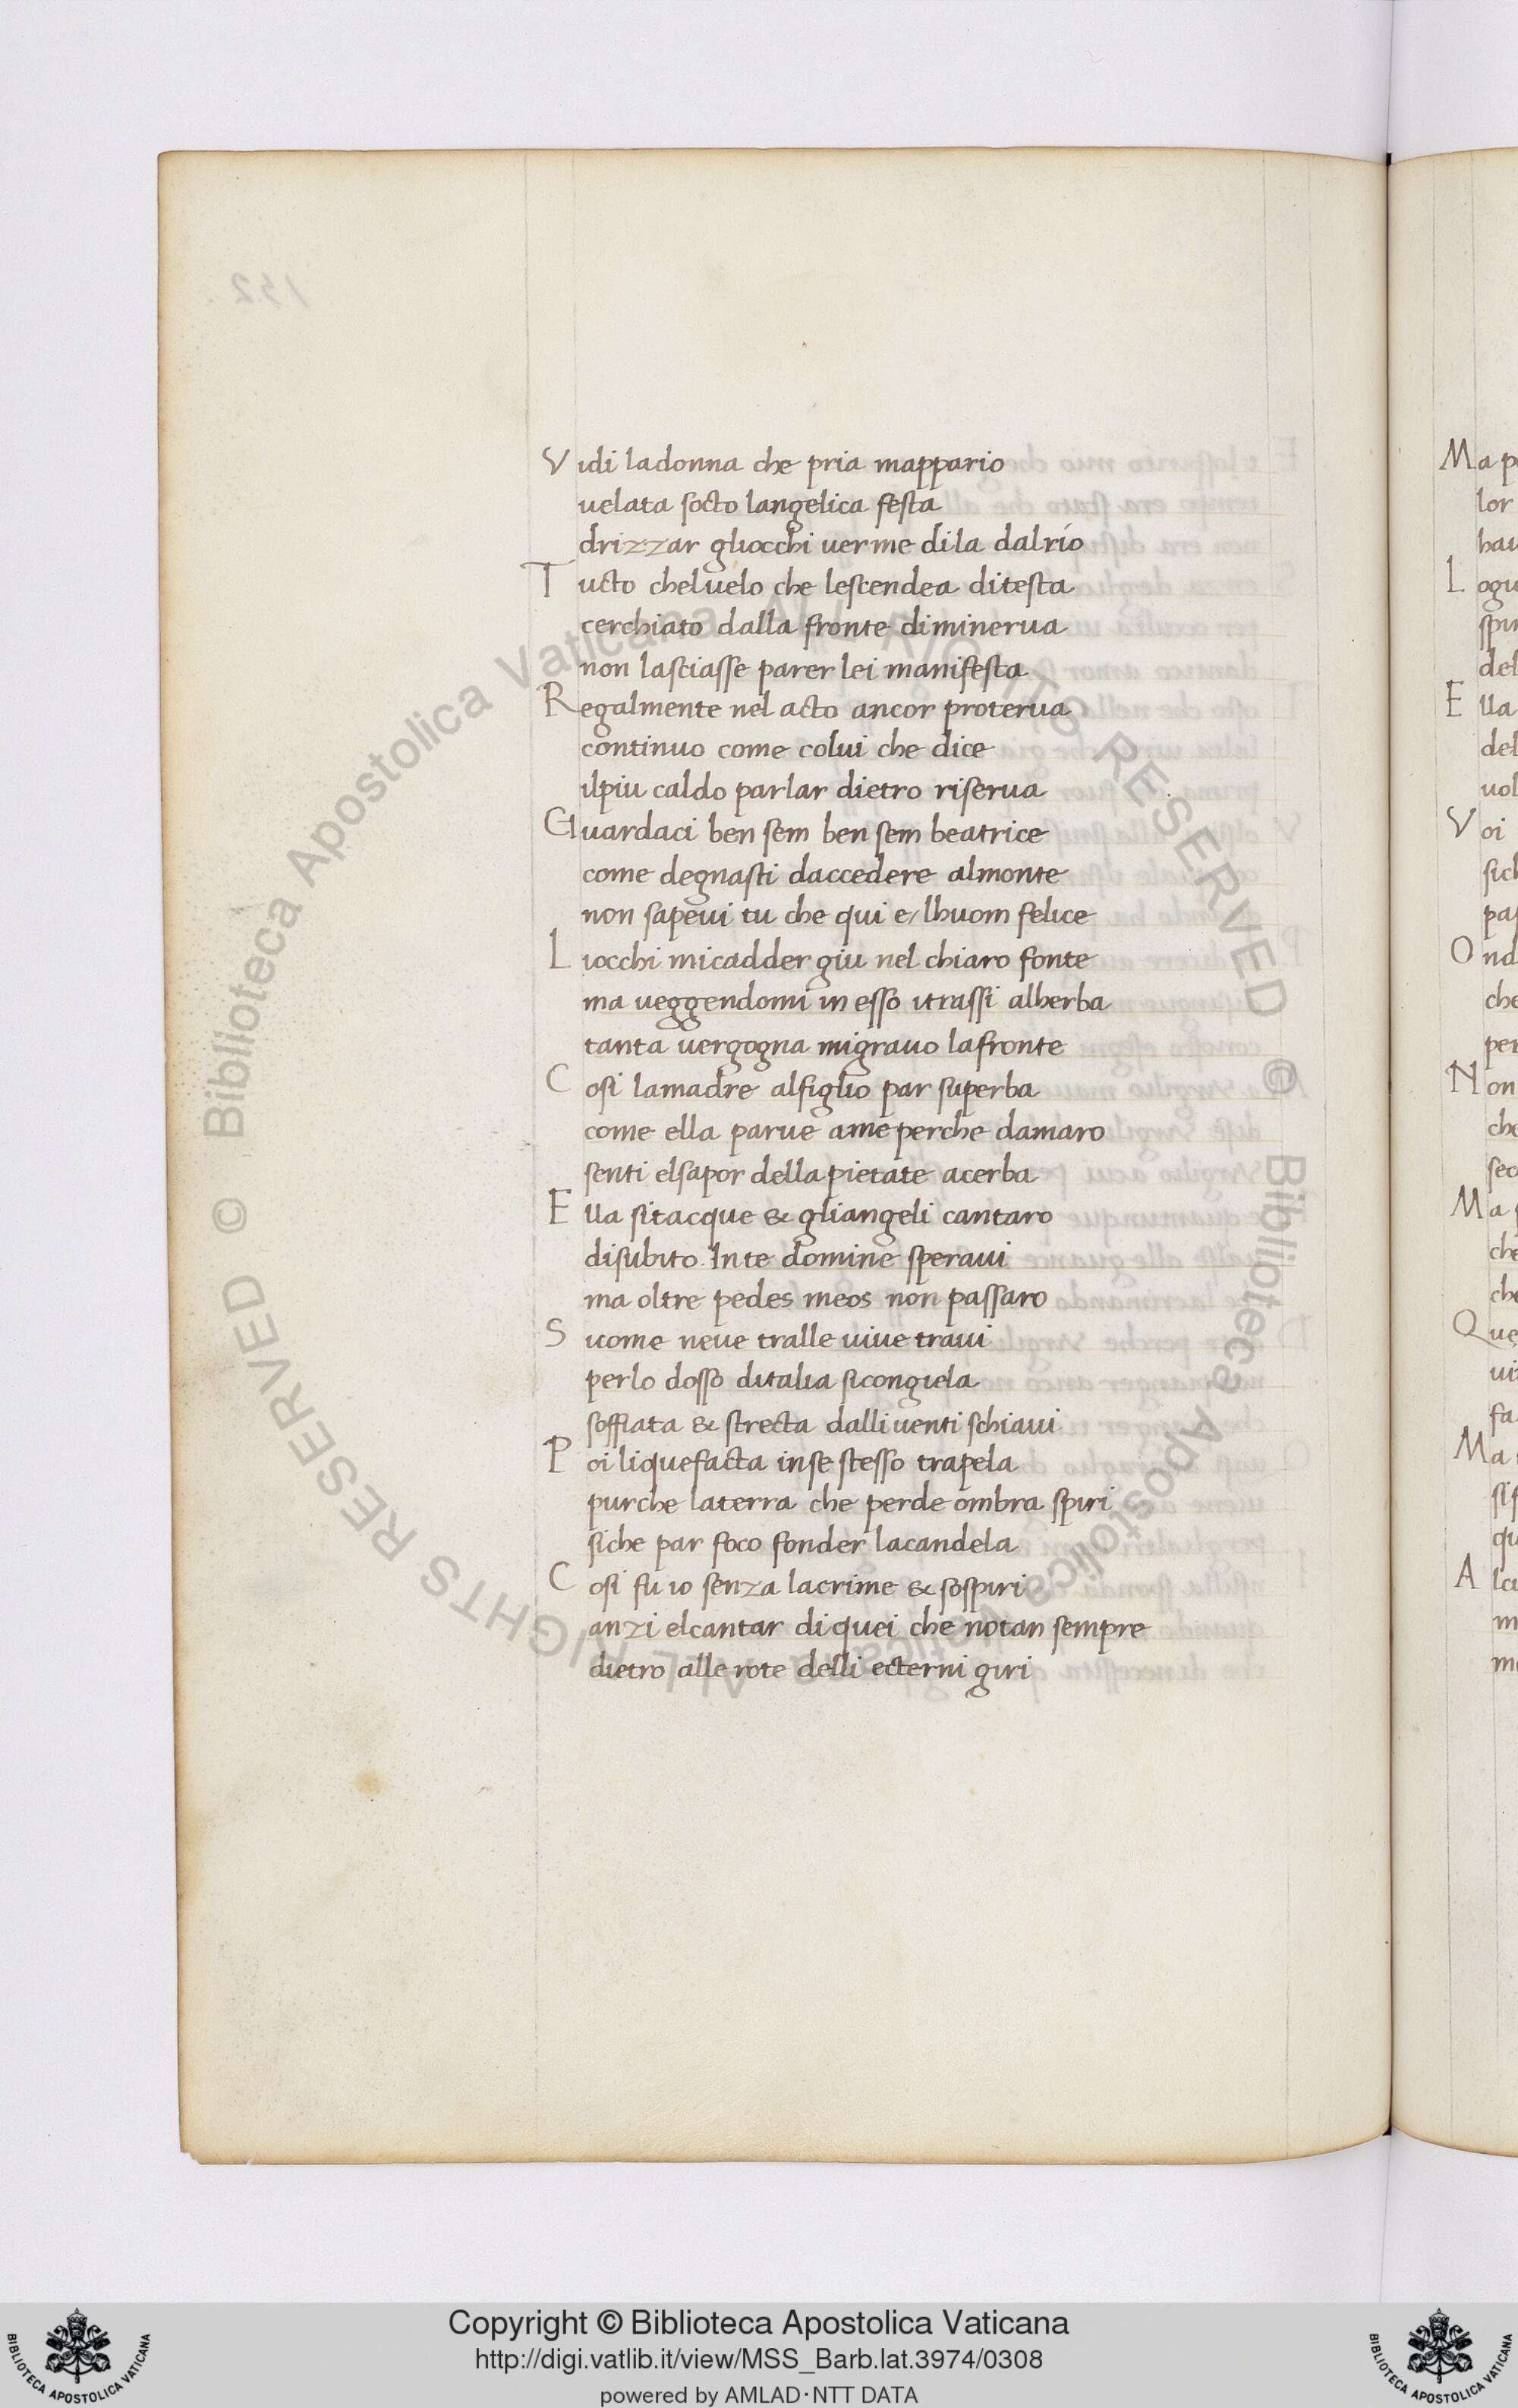 Vidi ladonna che pria mappario
uelata socto langelica festa
drizzar gliocchi uer me dila dalrio
Tucto cheluelo che lescendea ditesta
cerchiato dalla fronte diminerua
non lasciasse parer lei manifesta
Regalmente nel acto ancor proterua
continuo come colui che dice
ilpiu caldo parlar dietro riserua
Guardaci ben sem ben sem beatrice
come degnasti daccedere almonte
non sapeui tu che qui e/ lhuom felice
Liocchi micadder giu nel chiaro fonte
ma ueggendomi in esso itrassi alherba
tanta uergogna migrauo lafronte
Cosi lamadre alfiglio par superba
come ella parue ame perche damaro
senti elsapor della pietate acerba
Ella sitacque & gliangeli cantaro
disubito. In te domine speraui
ma oltre pedes meos non passaro
Sicome neue tralle uiue traui
perlo dosso ditalia sicongiela
soffiata & strecta dalli uenti schiaui
Poi liquefacta inse stesso trapela
purche laterra che perde ombra spiri
siche par foco fonder lacandela
Cosi fu io senza lacrime & sospiri
anzi elcantar di quei che notan sempre
dietro alle rote delli ecterni giri
Ma
lor
L
E lla
del
uol
Voi
O nd
che
per
Non
che
Ma
che
che
Que
fa
Ma
A
Biblioteca Apostolica Vaticana ALL RIGHTS RESERVED © Biblioteca Apostolica Vaticana ALL RIGHTS RESERVED ©
132
Copyright © Biblioteca Apostolica Vaticana
http://digi.vatlib.it/view/MSS_Barb.lat.3974/0308
powered by AMLAD·NTT DATA
BIBLIOTECA APOSTOLICA VATICANA
BIBLIOTECA APOSTOLICA VATICANA